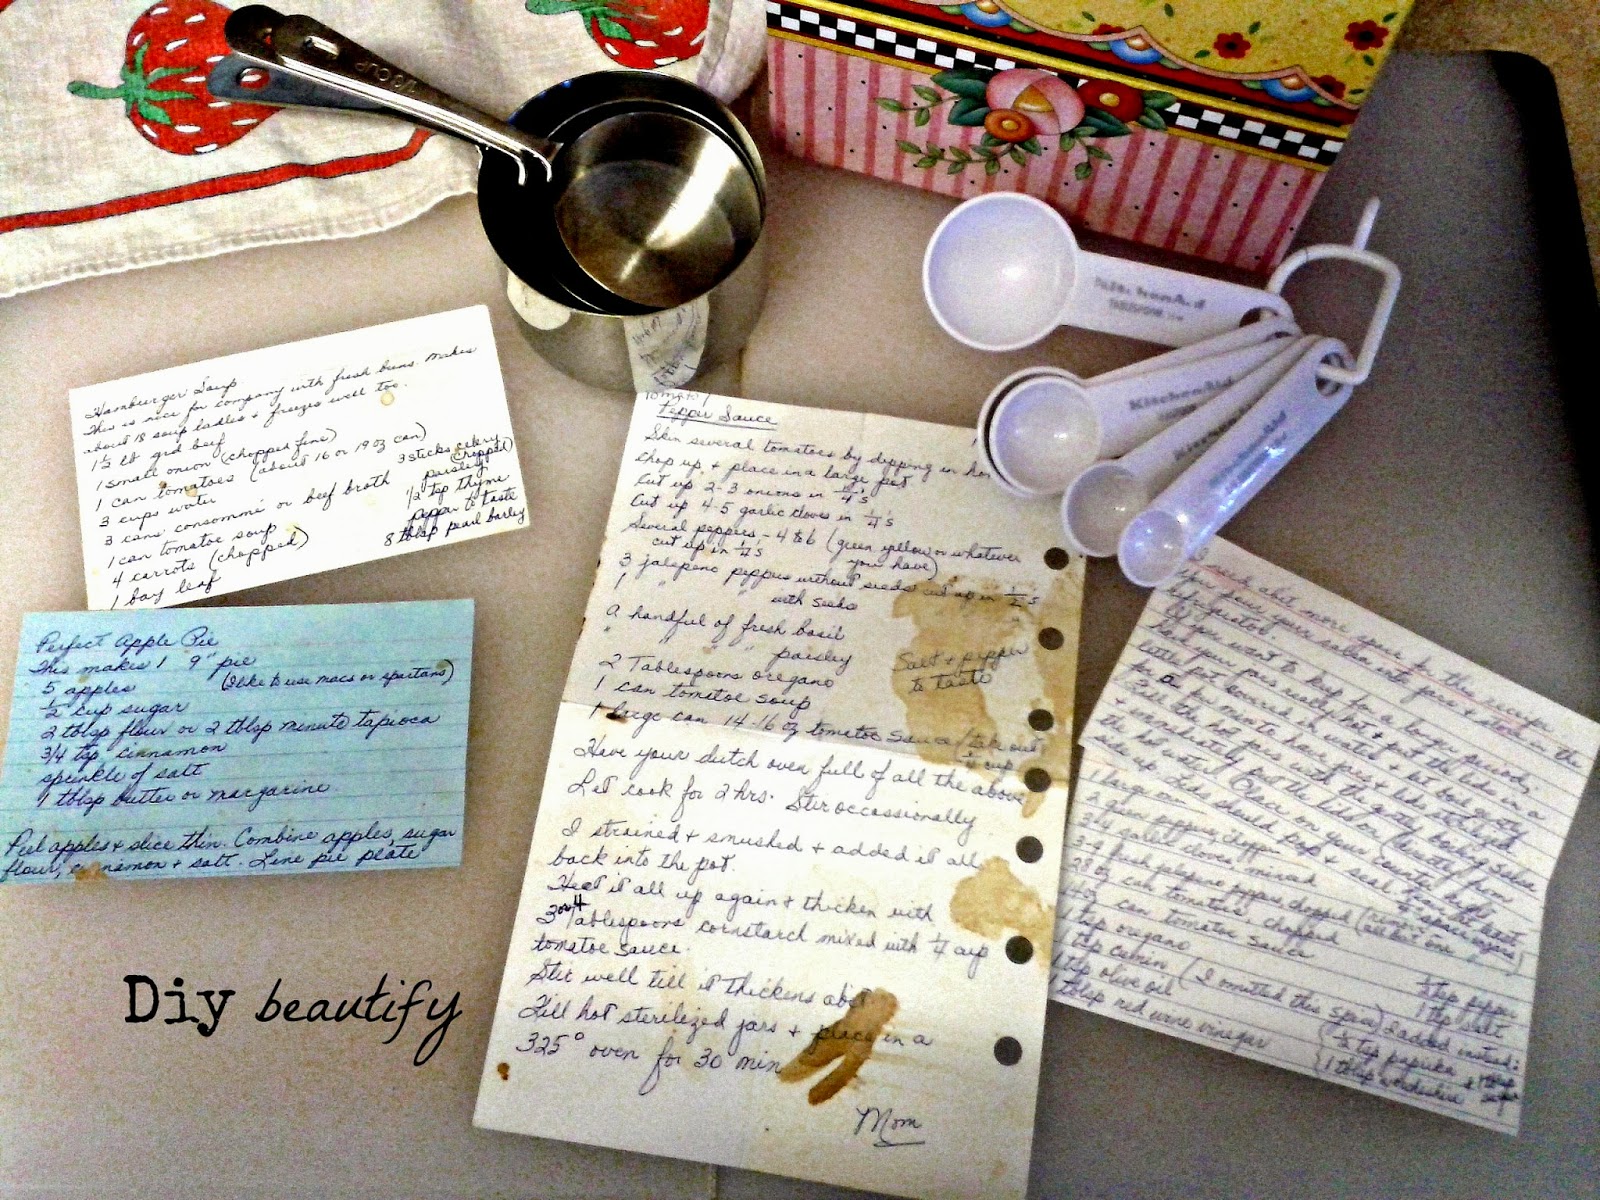 Hamburger Soup
This is nice for company with fresh buns. Makes
about 18 soup ladles + freezes well too.
1½ lb grd beef
1 small onion (chopped fine)
1 can tomatoes (about 16 or 19 oz can)
3 cups water
3 cans consommé or beef broth
1 can tomatoe soup
4 carrots (chopped)
1 bay leaf
3 sticks celery
(chopped)
parsley
½ tsp thyme
pepper to taste
8 tblsp pearl barley
Perfect Apple Pie
This makes 1 9" pie
5 apples (I like to use macs or spartans)
½ cup sugar
2 tblsp flour or 2 tblsp minute tapioca
3/4 tsp cinnamon
sprinkle of salt
1 tblsp butter or margarine
Peel apples + slice thin. Combine apples, sugar
flour, cinnamon + salt. Line pie plate
Tomato/
Pepper Sauce
Skin several tomatoes by dipping in
Chop up + place in a large pot
Cut up 2-3 onions in ¼'s
Cut up 4-5 garlic cloves in ¼'s
Several peppers - 4 to 6 (green yellow or whatever
cut up in ¼'s you have)
3 jalapeno peppers without seeds cut up in ½'s
1 " " with seeds
A handful of fresh basil
" " " paisley
2 Tablespoons oregano
1 can tomatoe soup
Salt + pepper
to taste
1 large can 14-16 oz tomatoe sauce (take out
¼ cup
Have your dutch oven full of all the above
Let cook for 2 hrs. Stir occassionally
I strained + smushed + added it all
back into the pot.
Heat it all up again + thicken with
3 or 4 Tablespoons cornstarch mixed with ¼ cup
tomatoe sauce.
Stir well till it thickens abit
Fill hot sterilized jars + place in a
325° oven for 30 min
Mom
abit more space for this recipe
you pour your salsa into jars + store in the
refrigator
If you want to keep for a longer period,
have your jars really hot + put the lids in a
little pot covered with water + let boil gently
for a
Fill the hot jars with the good boiling salsa
1 large onion
2 green peppers chopped
3-4 garlic cloves minced
3-4 fresh jalapeno peppers chopped
28 oz can tomatoes chopped
14 oz can tomatoe sauce
1 tsp oregano
1 tsp cumin (I omitted this spice) I added instead:
1 tsp olive oil
1 tblsp red wine vinegar
½ tsp pepper
1 tsp salt
½ tsp paprika
1 tblsp
KitchenAid
TABLESPOON
KitchenAid
KitchenAid
CUP
Diy beautify